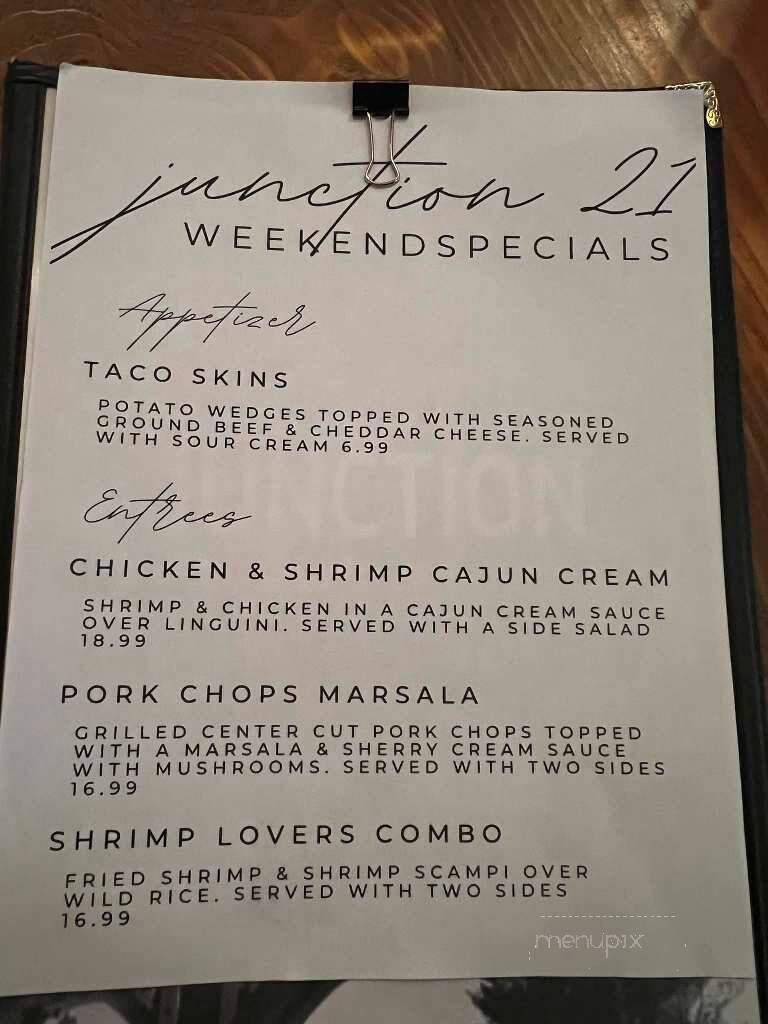 junction 21
WEEKENDSPECIALS
Appetizer
TACO SKINS
POTATO WEDGES TOPPED WITH SEASONED
GROUND BEEF & CHEDDAR CHEESE. SERVED
WITH SOUR CREAM 6.99
JUNCTION
Entrees
CHICKEN & SHRIMP CAJUN CREAM
SHRIMP & CHICKEN IN A CAJUN CREAM SAUCE
OVER LINGUINI. SERVED WITH A SIDE SALAD
18.99
PORK CHOPS MARSALA
GRILLED CENTER CUT PORK CHOPS TOPPED
WITH A MARSALA & SHERRY CREAM SAUCE
WITH MUSHROOMS. SERVED WITH TWO SIDES
16.99
SHRIMP LOVERS COMBO
FRIED SHRIMP & SHRIMP SCAMPI OVER
WILD RICE. SERVED WITH TWO SIDES
16.99
menupix